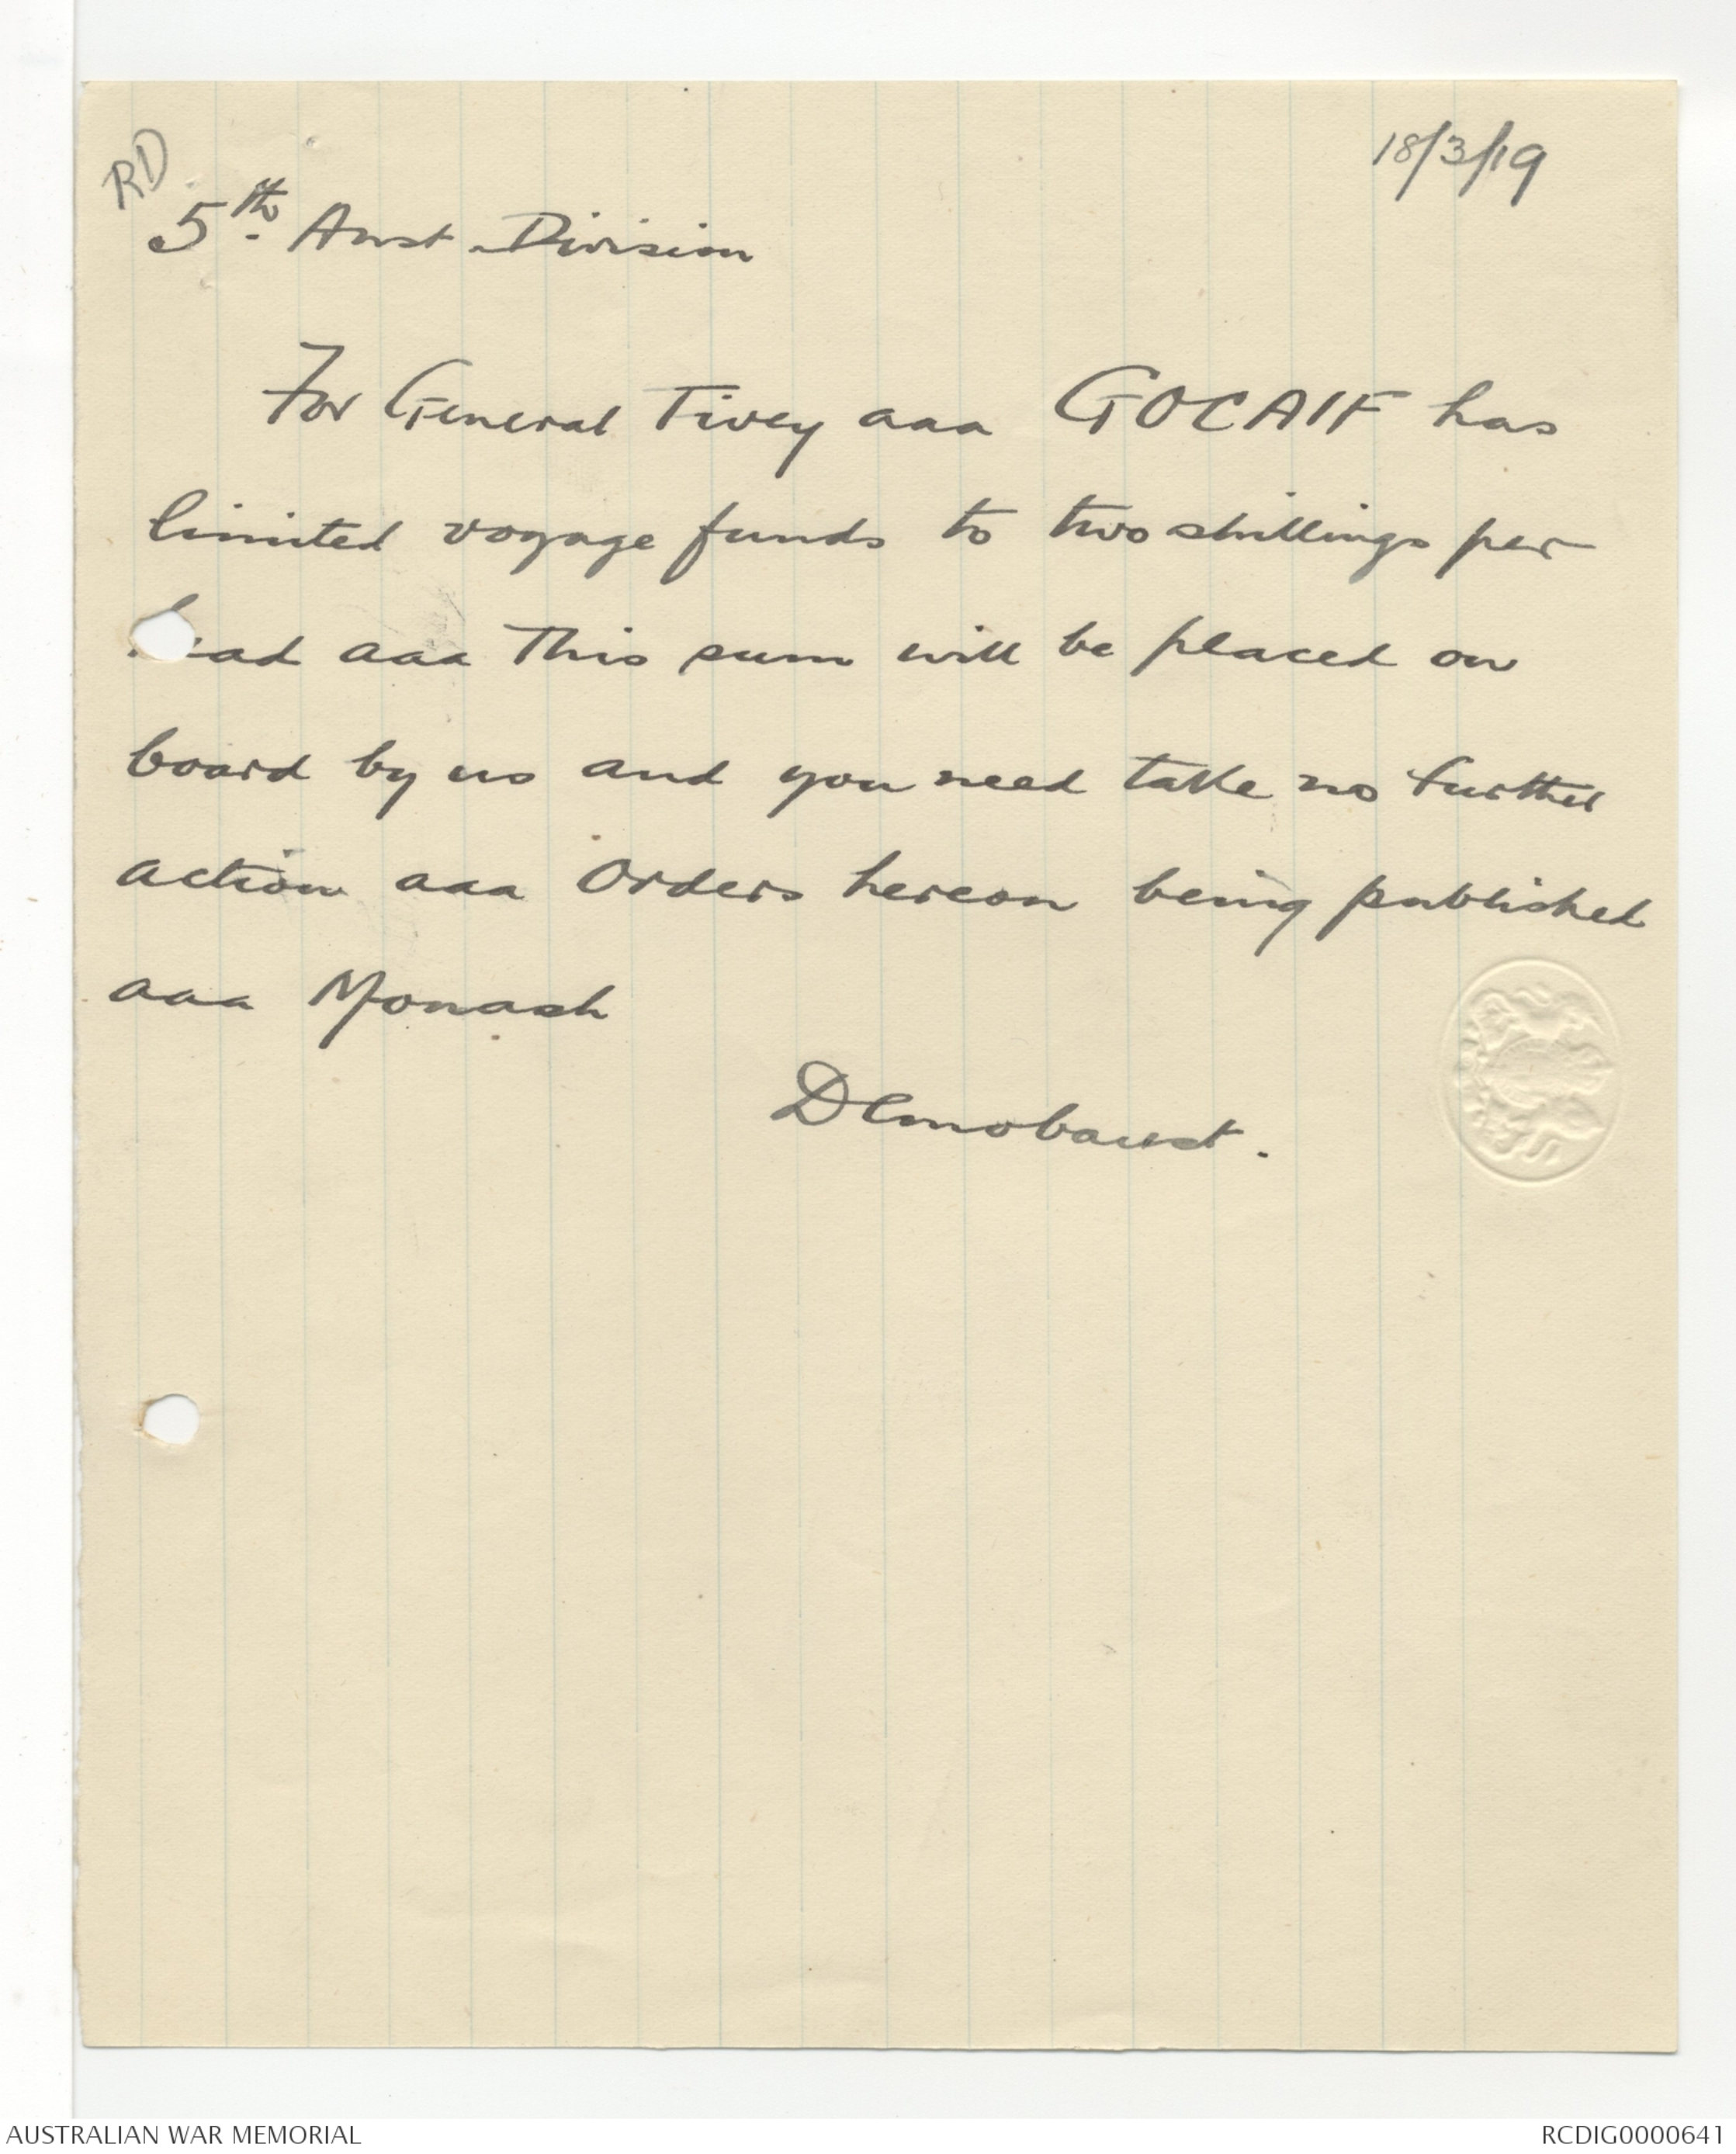 RD
18/3/19
5th. Aust Division
For General Tivey aaa GOCAIF has
limited voyage funds to two shillings per
head aaa This sum will be placed on
board by us and you need take no further
action aaa Orders hereon being published
aaa Monash
Demobaust.
AUSTRALIAN WAR MEMORIAL
RCDIG0000641